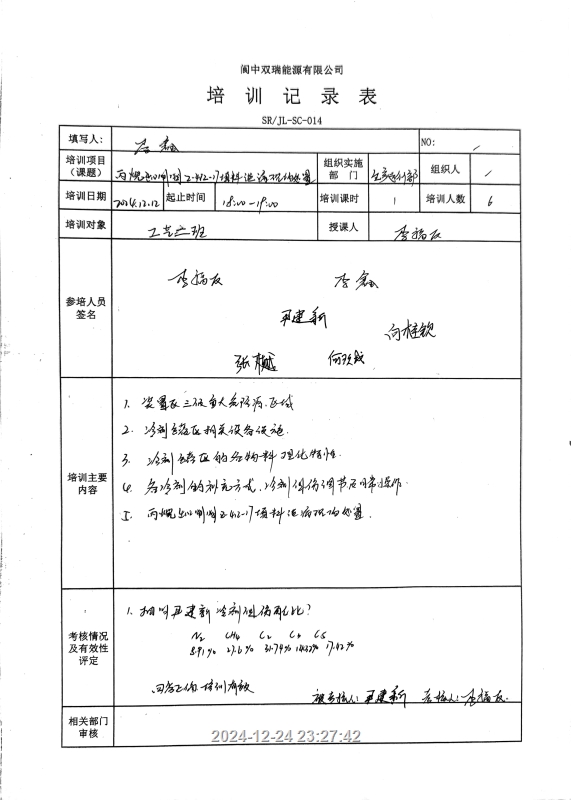 阆中双瑞能源有限公司
培训记录表
SR/JL-SC-014
填写人： 李鑫 NO: /
培训项目（课题） 组织实施部门 组织人 /
培训日期 2024.12.12 起止时间 18:00-19:00 培训课时 1 培训人数 6
培训对象 工艺三班 授课人 李福友
参培人员签名
李福友 李鑫
尹建新
向梓钦
张
培训主要内容
1. 装置区三级重大危险源区域
2. 冷剂储存区相关设备设施.
3. 冷剂储存区的各物料理化特性.
4. 各冷剂的补充方式,冷剂组份调节及日常操作
5. 丙烷
考核情况及有效性评定
1. 抽问尹建新冷剂组份配比?
N₂ CH₄ C₂ C₃ C₅
8.91% 27.6% 31.74% 14.32% 17.42%
回答正确 培训有效
被考核人: 尹建新 考核人: 李福友.
相关部门审核
2024-12-24 23:27:42